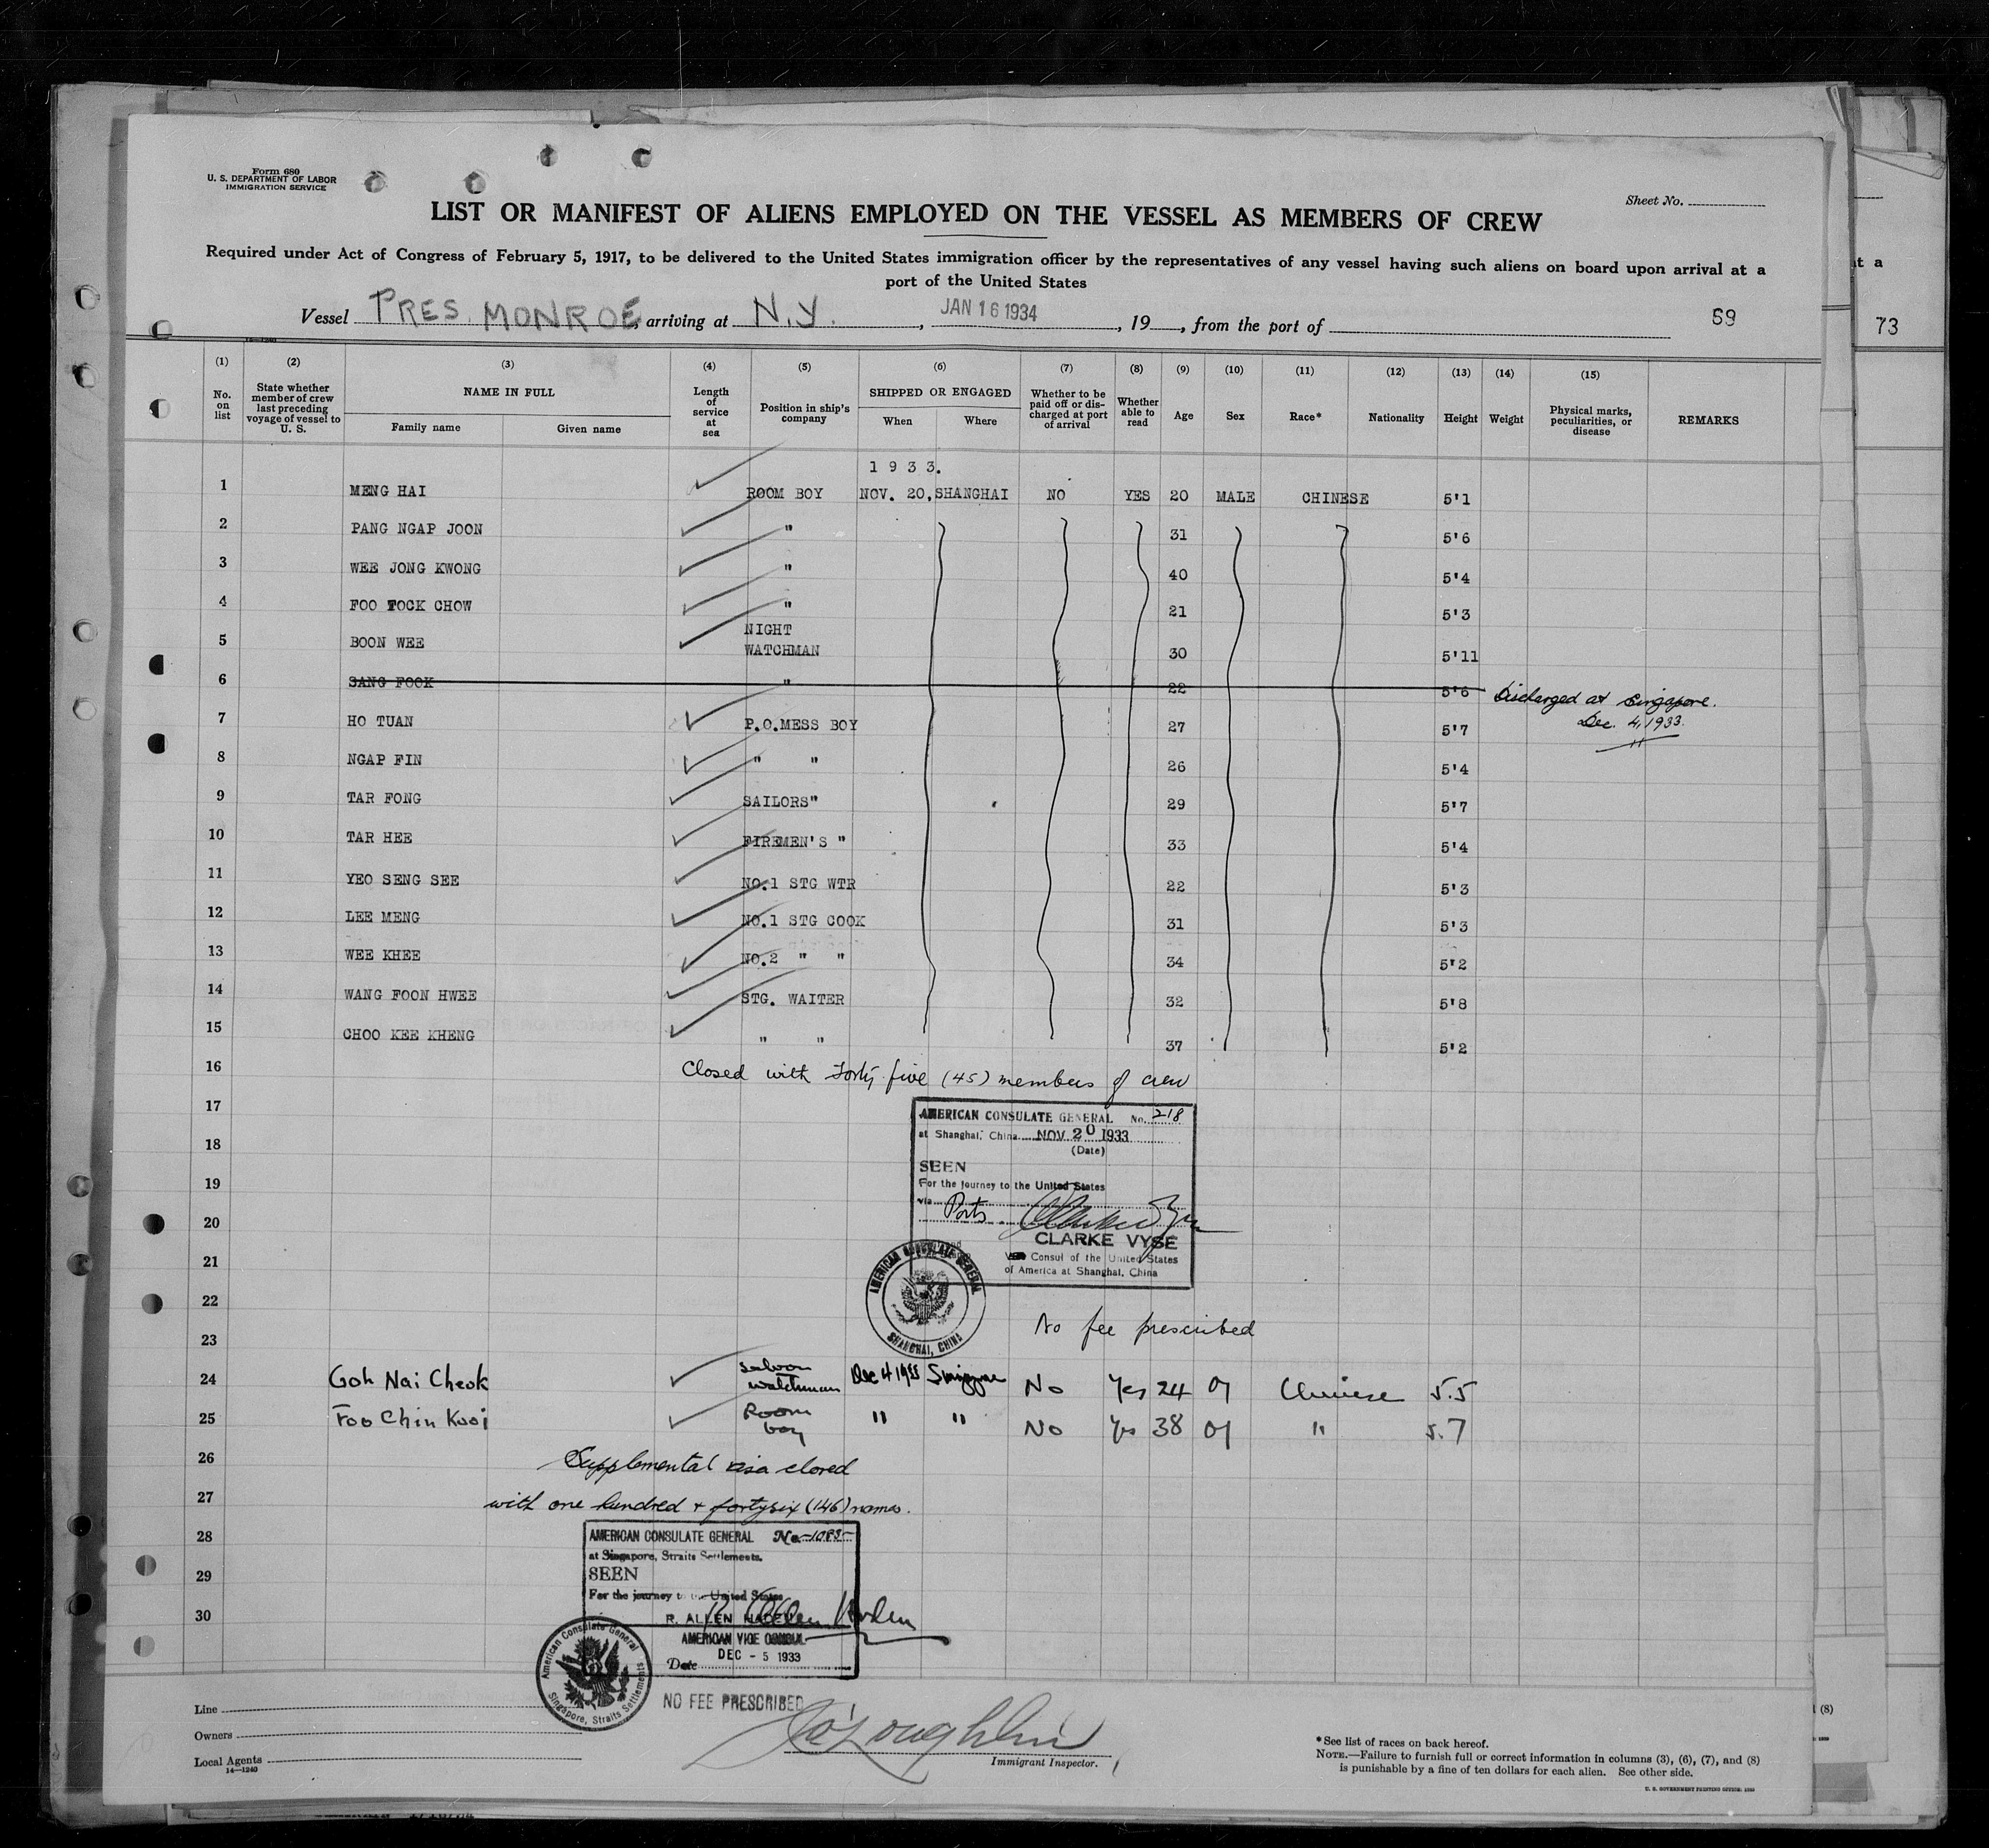 Form 680
U. S. DEPARTMENT OF LABOR
IMMIGRATION SERVICE
Sheet No.
LIST OR MANIFEST OF ALIENS EMPLOYED ON THE VESSEL AS MEMBERS OF CREW
Required under Act of Congress of February 5, 1917, to be delivered to the United States immigration officer by the representatives of any vessel having such aliens on board upon arrival at a
port of the United States
Vessel PRES. MONROE, arriving at N.Y., JAN 16 1934, 19, from the port of
59
73
t a
(1) (2) (3) (4) (5) (6) (7) (8) (9) (10) (11) (12) (13) (14) (15)
No. on list
State whether member of crew last preceding voyage of vessel to U. S.
NAME IN FULL
Family name
Given name
Length of service at sea
Position in ship's company
SHIPPED OR ENGAGED
When
Where
Whether to be paid off or discharged at port of arrival
Whether able to read
Age
Sex
Race*
Nationality
Height
Weight
Physical marks, peculiarities, or disease
REMARKS
1933.
1 MENG HAI ROOM BOY NOV. 20, SHANGHAI NO YES 20 MALE CHINESE 5'1
2 PANG NGAP JOON " 31 5'6
3 WEE JONG KWONG " 40 5'4
4 FOO TOCK CHOW " 21 5'3
5 BOON WEE NIGHT WATCHMAN 30 5'11
6 SANG FOOK " 22 5'6 Discharged at Singapore.
Dec. 4, 1933.
7 HO TUAN P.O.MESS BOY 27 5'7
8 NGAP FIN " " 26 5'4
9 TAR FONG SAILORS" 29 5'7
10 TAR HEE FIREMEN'S " 33 5'4
11 YEO SENG SEE NO.1 STG WTR 22 5'3
12 LEE MENG NO.1 STG COOK 31 5'3
13 WEE KHEE NO.2 " " 34 5'2
14 WANG FOON HWEE STG. WAITER 32 5'8
15 CHOO KEE KHENG " " 37 5'2
16 Closed with Forty five (45) members of crew
17
18
19
20
21
22
23
AMERICAN CONSULATE GENERAL No. 218
at Shanghai, China NOV 20 1933
(Date)
SEEN
For the journey to the United States
via Ports
CLARKE VYSE
Consul of the United States
of America at Shanghai, China
AMERICAN CONSULATE GENERAL
SHANGHAI, CHINA
No fee prescribed
24 Goh Nai Cheok Saloon watchman Dec 4 1933 Singapore No Yes 24 Chinese 5.5
25 Foo Chin Kooi Room boy " " No Yes 38 " 5.7
26 Supplemental visa closed
27 with one hundred + fortysix (146) names.
28
29
30
AMERICAN CONSULATE GENERAL No. 1085
at Singapore, Straits Settlements.
SEEN
For the journey to the United States
R. ALLEN HADEN
AMERICAN VICE CONSUL
Date DEC - 5 1933
American Consulate General
Singapore, Straits Settlements
NO FEE PRESCRIBED
Line
Owners
Local Agents
14—1240
O'Loughlin
Immigrant Inspector.
*See list of races on back hereof.
NOTE.—Failure to furnish full or correct information in columns (3), (6), (7), and (8)
is punishable by a fine of ten dollars for each alien. See other side.
(8)